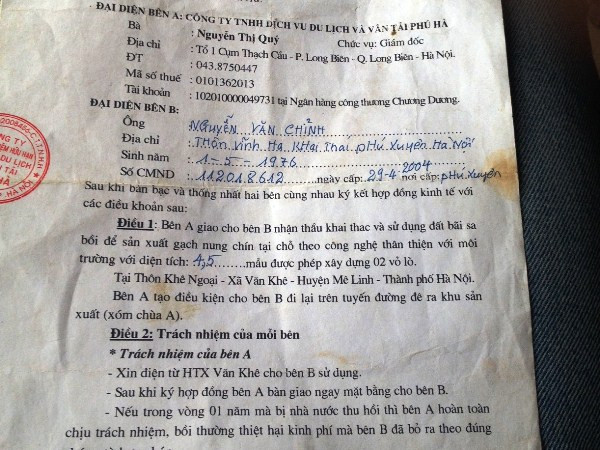 ĐẠI DIỆN BÊN A: CÔNG TY TNHH DỊCH VỤ DU LỊCH VÀ VẬN TẢI PHÚ HÀ
Bà : Nguyễn Thị Quý Chức vụ: Giám đốc
Địa chỉ : Tổ 1 Cụm Thạch Cầu - P. Long Biên - Q. Long Biên - Hà Nội.
ĐT : 043.8750447
Mã số thuế : 0101362013
Tài khoản : 102010000049731 tại Ngân hàng công thương Chương Dương.
ĐẠI DIỆN BÊN B:
Ông : NGUYỄN VĂN CHỈNH
Địa chỉ : Thôn Vĩnh Hạ Khai Thái Phú Xuyên Hà Nội
Sinh năm : 1-5-1976
Số CMND : 112018612 ngày cấp: 29-4-2004 nơi cấp: Phú Xuyên
Sau khi bàn bạc và thống nhất hai bên cùng nhau ký kết hợp đồng kinh tế với
các điều khoản sau:
Điều 1: Bên A giao cho bên B nhận thầu khai thac và sử dụng đất bãi sa
bồi để sản xuất gạch nung chín tại chỗ theo công nghệ thân thiện với môi
trường với diện tích: 4,5 mẫu được phép xây dựng 02 vỏ lò.
Tại Thôn Khê Ngoại - Xã Văn Khê - Huyện Mê Linh - Thành phố Hà Nội.
Bên A tạo điều kiện cho bên B đi lại trên tuyến đường đê ra khu sản
xuất (xóm chùa A).
Điều 2: Trách nhiệm của mỗi bên
* Trách nhiệm của bên A
- Xin điện từ HTX Văn Khê cho bên B sử dụng.
- Sau khi ký hợp đồng bên A bàn giao ngay mặt bằng cho bên B.
- Nếu trong vòng 01 năm mà bị nhà nước thu hồi thì bên A hoàn toàn
chịu trách nhiệm, bồi thường thiệt hại kinh phí mà bên B đã bỏ ra theo đúng